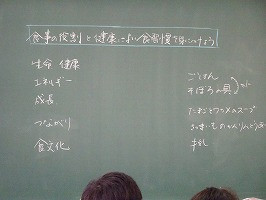 食事の役割と健康によい食習慣を見につけよう
生命 健康
エネルギー
成長
つながり
食文化
ごはん
そぼろの具
たまごとワカメのスープ
牛乳